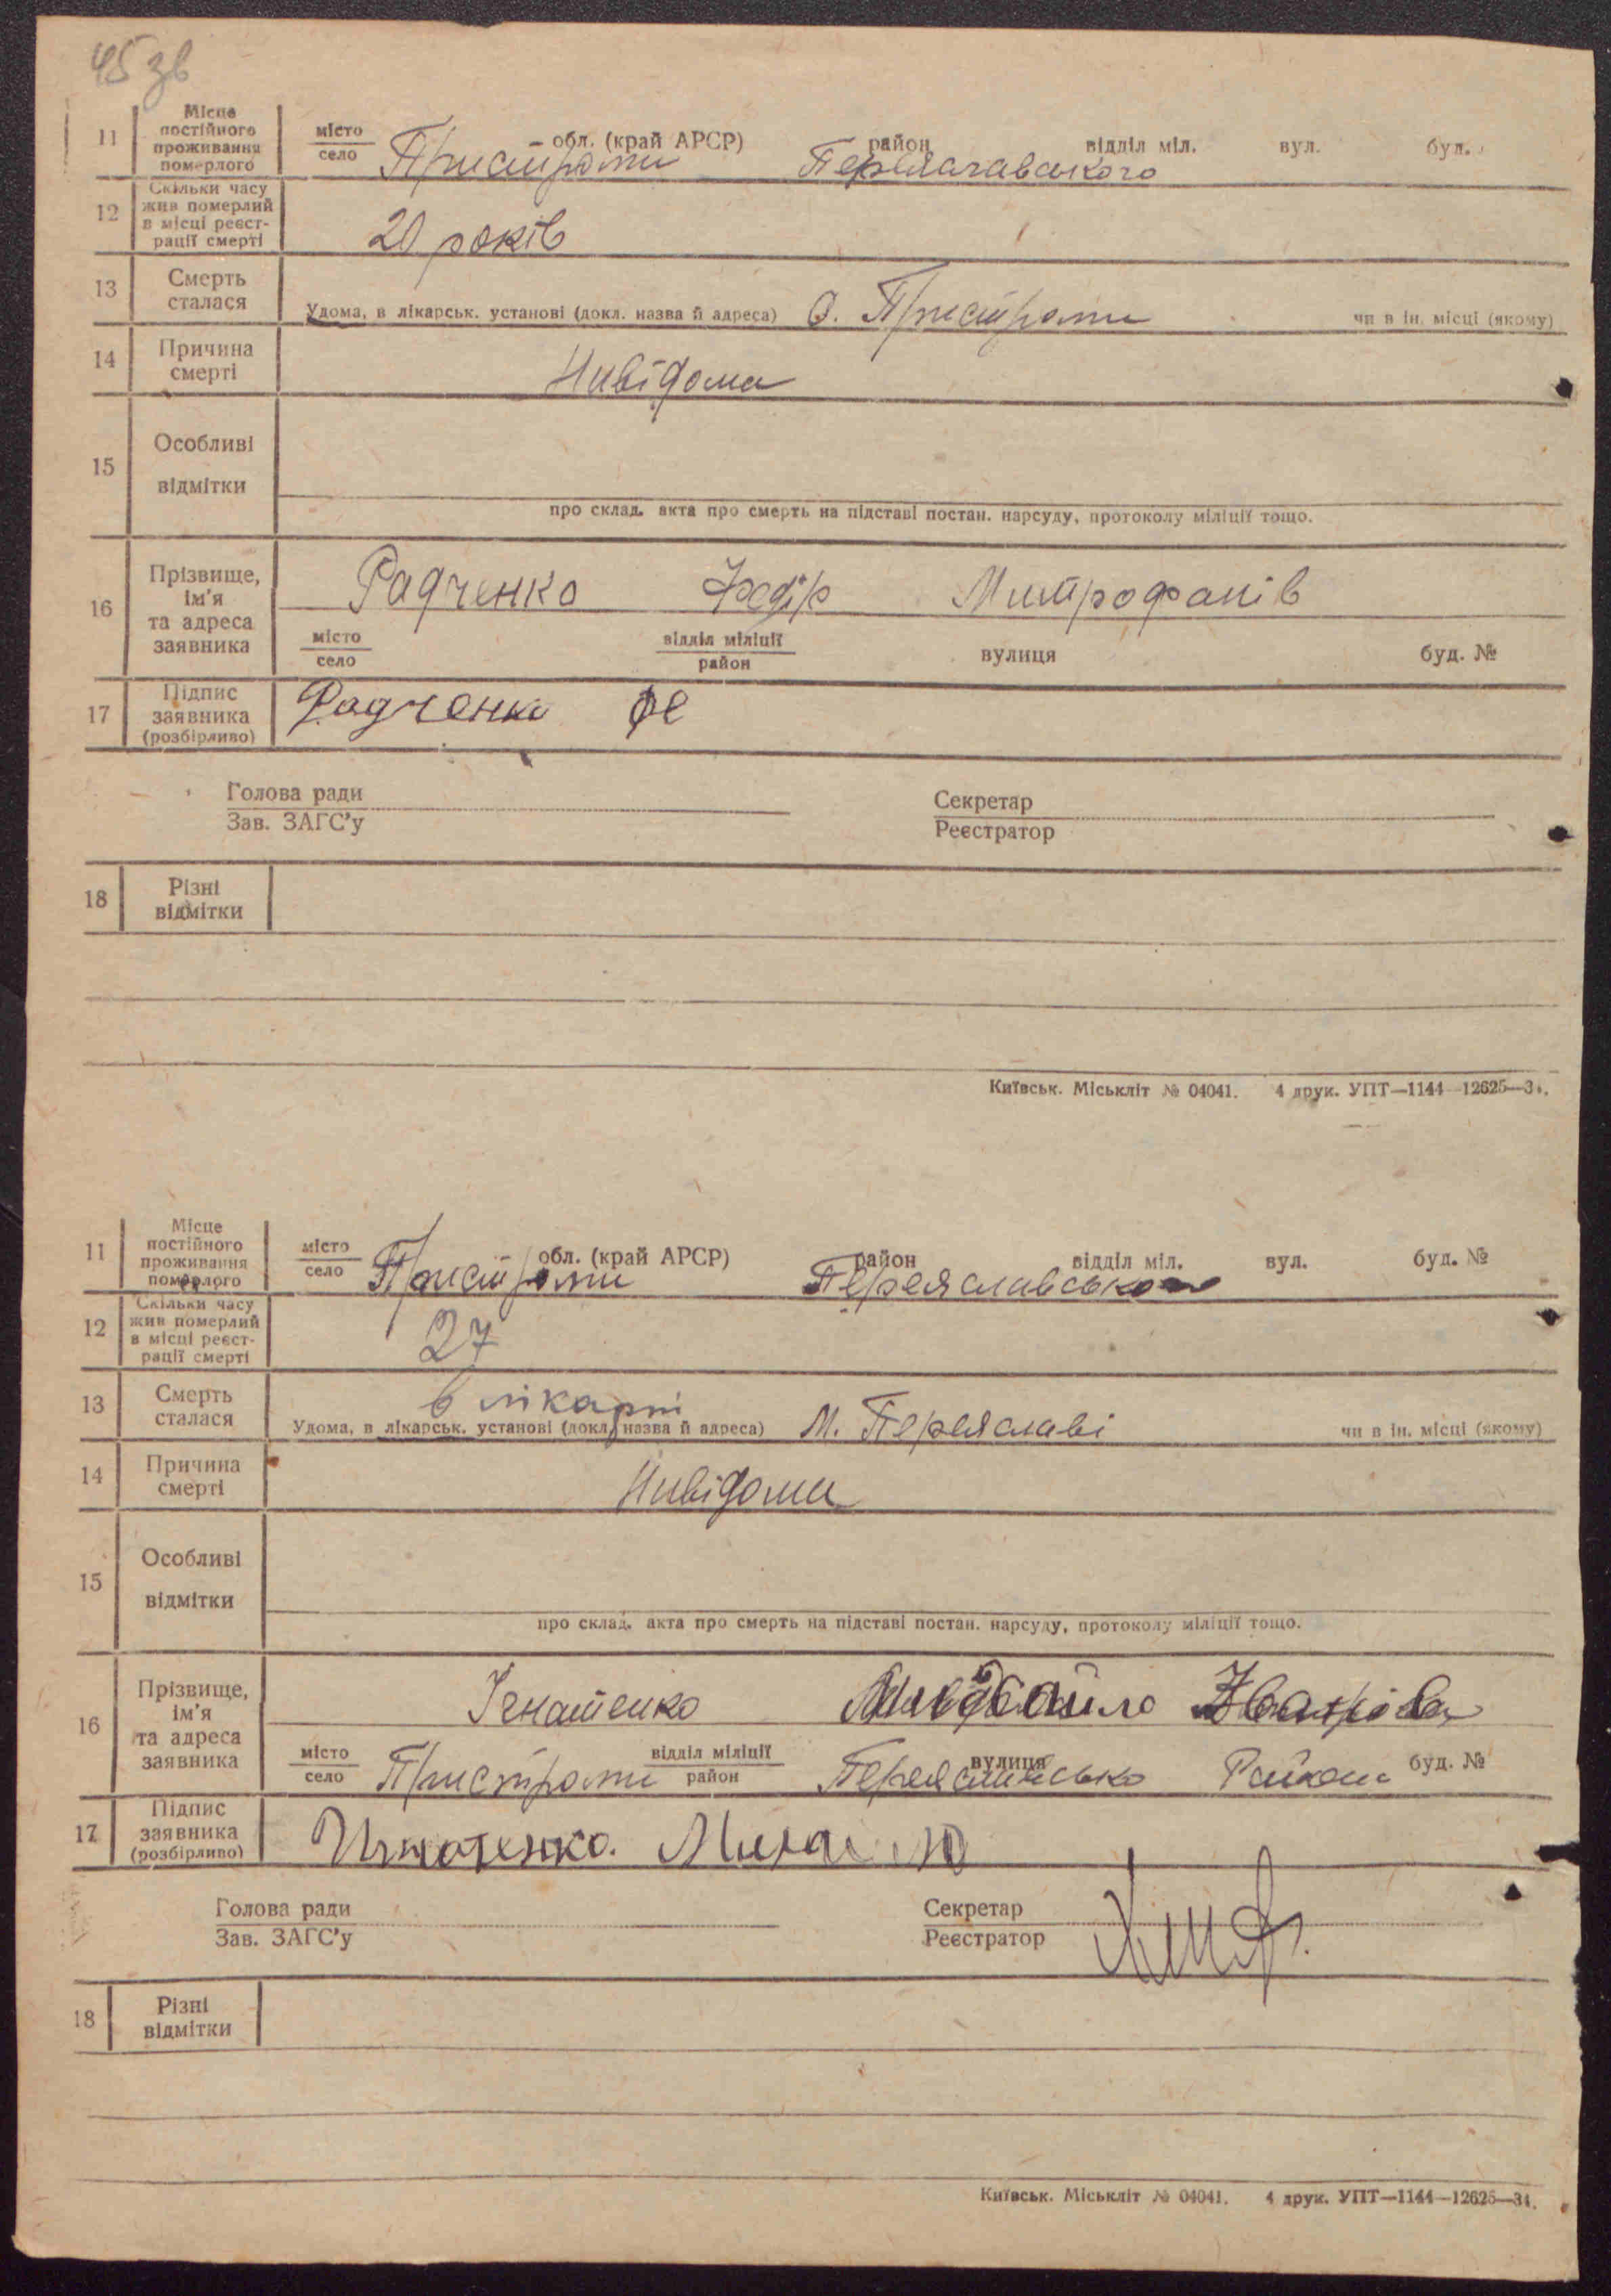 45 зв
11 Місце постійного проживання померлого місто село Пристроми обл. (край АРСР) район Переяславського відділ міл. вул. буд.
12 Скільки часу жив померлий в місці реєстрації смерті 20 років
13 Смерть сталася Удома, в лікарськ. установі (докл. назва й адреса) С. Пристроми чи в ін. місці (якому)
14 Причина смерті Нивідома
15 Особливі відмітки
про склад. акта про смерть на підставі постан. нарсуду, протоколу міліції тощо.
16 Прізвище, ім'я та адреса заявника Радченко Федір Митрофанів
місто село відділ міліції район вулиця буд. №
17 Підпис заявника (розбірливо) Радченко Фе
Голова ради Секретар
Зав. ЗАГС'у Реєстратор
18 Різні відмітки
Київськ. Міськліт № 04041. 4 друк. УПТ—1144—12625—34.
11 Місце постійного проживання померлого місто село Пристроми обл. (край АРСР) район Переяславсько відділ міл. вул. буд. №
12 Скільки часу жив померлий в місці реєст-рації смерті 27
13 Смерть сталася в лікарні
Удома, в лікарськ. установі (докл. назва й адреса) М. Переяславі чи в ін. місці (якому)
14 Причина смерті Нивідома
15 Особливі відмітки
про склад. акта про смерть на підставі постан. нарсуду, протоколу міліції тощо.
16 Прізвище, ім'я та адреса заявника Ігнатенко Михайло
місто село Пристроми відділ міліції район Переяславсько вулиця буд. №
17 Підпис заявника (розбірливо) Игнатенко. Михайло
Голова ради Секретар
Зав. ЗАГС'у Реєстратор
18 Різні відмітки
Київськ. Міськліт № 04041. 4 друк. УПТ—1144—12625—34.